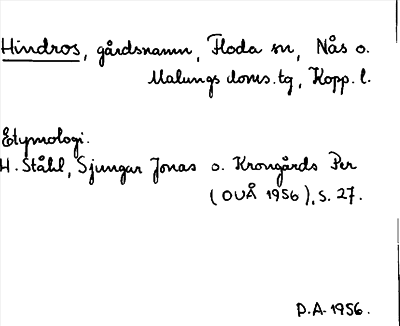 Hindros, gårdsnamn, Floda sn, Nås o.
Malungs doms.tg, Kopp. l.
Etymologi.
H. Ståhl, Sjungar Jonas o. Krongårds Per
(OUÅ 1956), s. 27.
D.A. 1956.